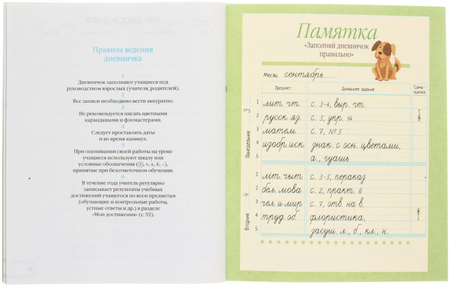 Правила ведения
дневничка
1
Дневничок заполняют учащиеся под
руководством взрослых (учителя, родителей).
2
Все записи необходимо вести аккуратно.
3
Не рекомендуется писать цветными
карандашами и фломастерами.
4
Следует проставлять даты
и во время каникул.
5
При оценивании своей работы на уроке
учащиеся используют шкалу или
условные обозначения
принятые при безотметочном обучении.
6
В течение года учитель регулярно
записывает результаты учебных
достижений учащегося по всем предметам
(обучающие и контрольные работы,
устные ответы и др.) в разделе
«Мои достижения» (с. 92).
Памятка
«Заполняй дневничок
правильно»
Месяц сентябрь
Предмет Домашнее задание Само-
оценка
Понедельник 3
1 лит. чт. с. 3-4, выр. чт.
2 русск. яз. с. 5, упр. 14
3 матем. с. 7, №5
4 изобр. иск. знак. с осн. цветами,
5 а., гуашь
Вторник 4
1 лит. чт. с. 3-5, пересказ
2 бел. мова с. 2, практ. 6
3 чел. и мир с. 7, отв. на в.
4 труд. об. флористика,
5 засуш. л., б., кл., н.